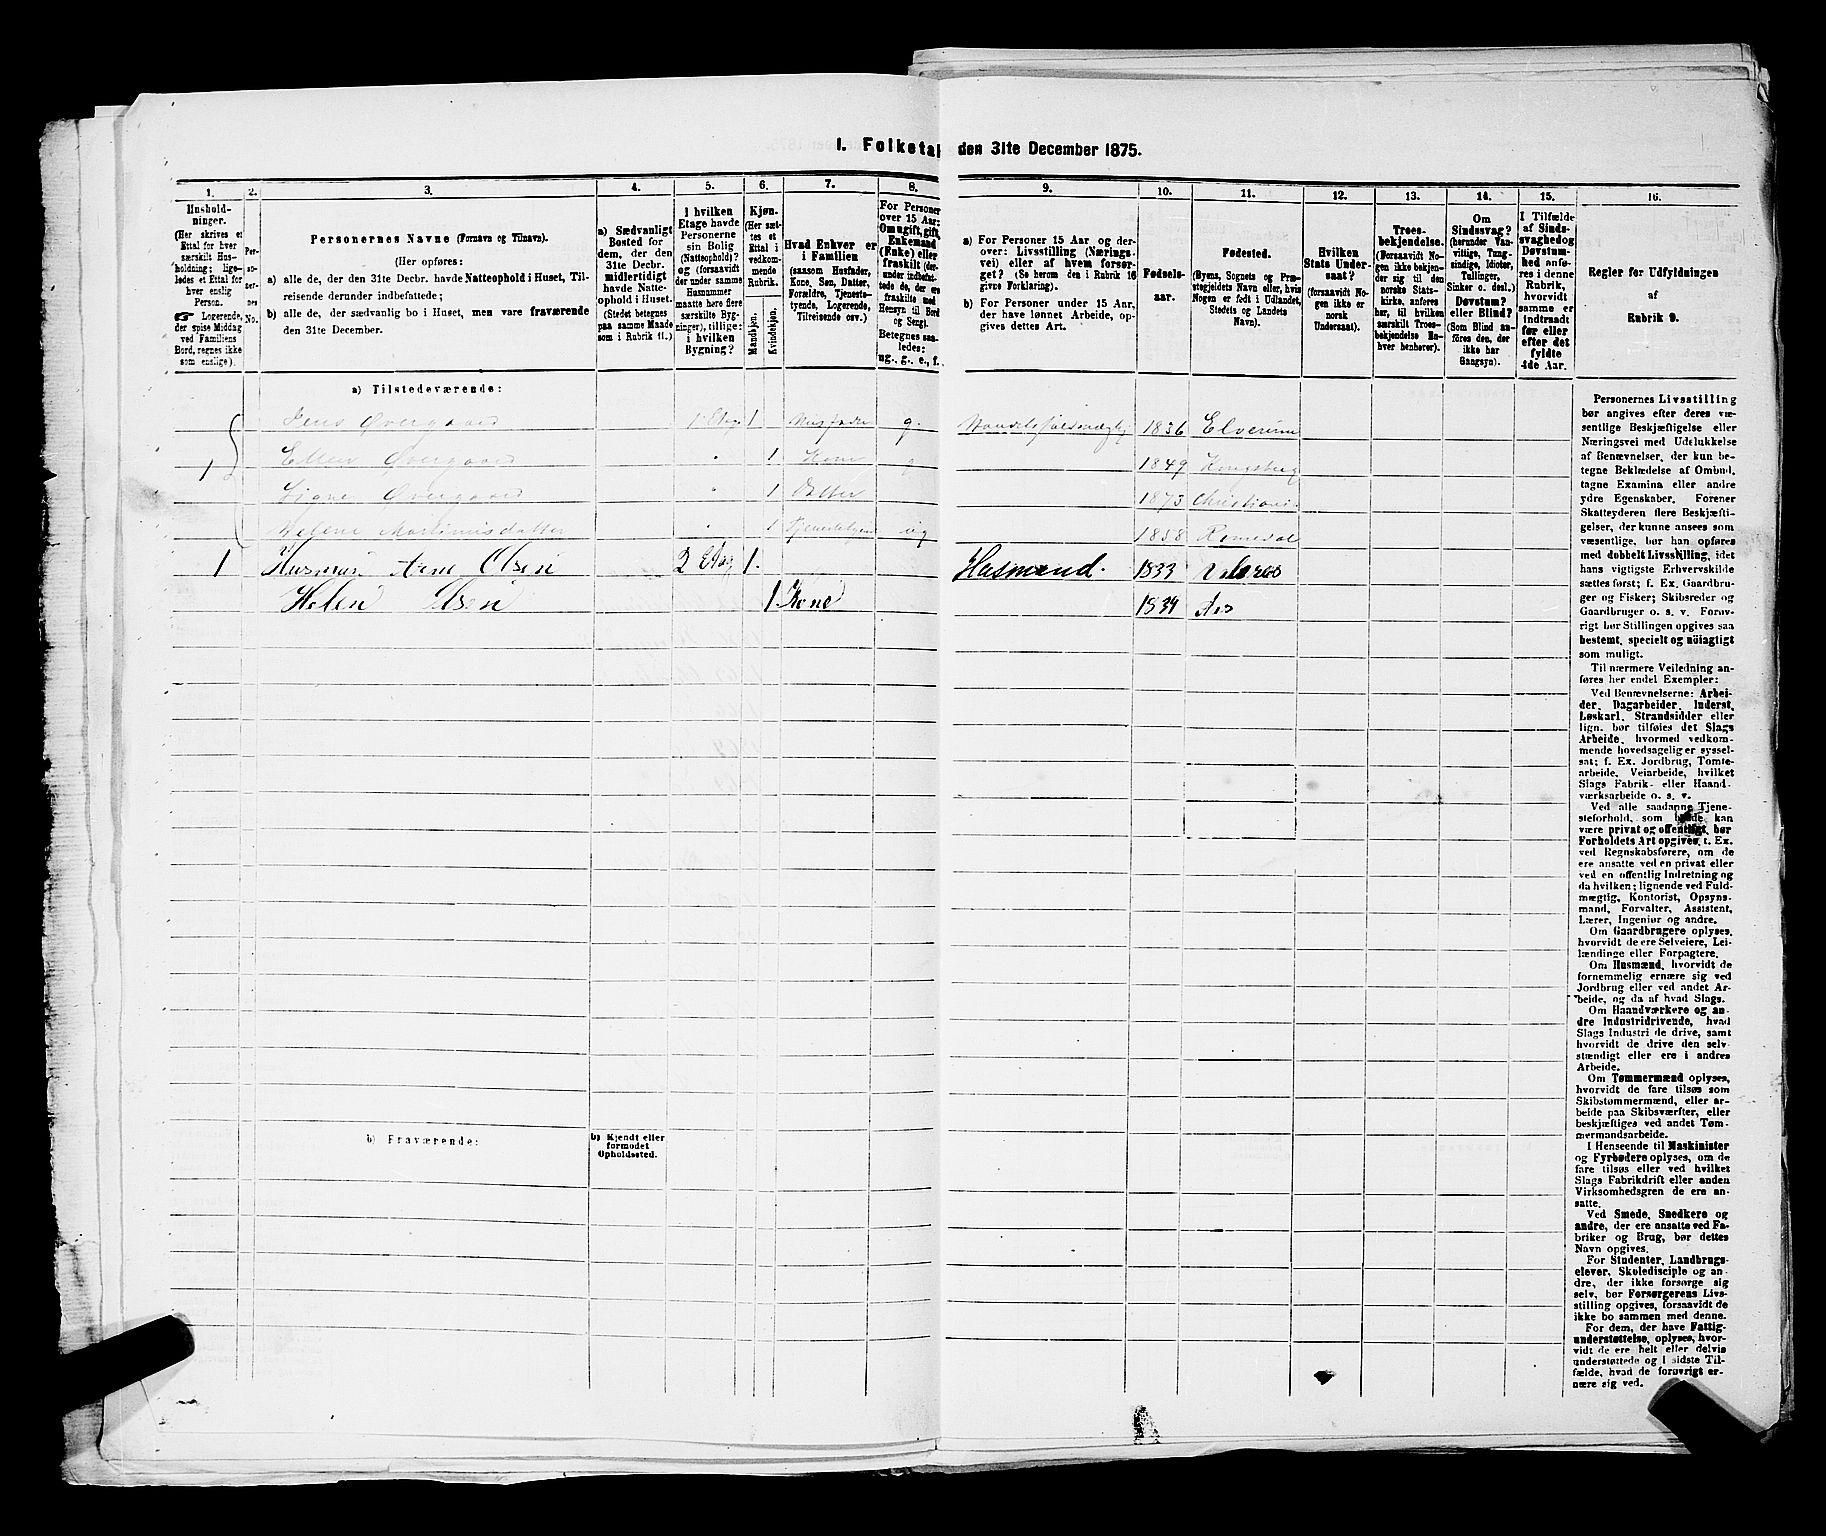 1. Folketæ den 31te December 1875.
1. 2. 3. 4. 5. 6. 7. 8. 9. 10. 11. 12. 13. 14. 15. 16.
Hushold-
ninger.
(Her skrives et
Ettal for hver
særskilt Hus-
holdning; lige-
ledes et Ettal
for hver enslig
Person.
☛ Logerende,
der spise Middag
ved Familiens
Bord, regnes ikke
som enslige).
Per-
so-
ner-
nes
No.
Personernes Navne (Fornavn og Tilnavn).
(Her opføres:
a) alle de, der den 31te Decbr. havde Natteophold i Huset, Til-
reisende derunder indbefattede;
b) alle de, der sædvanlig bo i Huset, men vare fraværende
den 31te December.
a) Sædvanligt
Bosted for
dem, der den
31te Decbr.
midlertidigt
havde Natte-
ophold i Huset.
(Stedet betegnes
paa samme Maade
som i Rubrik 11.)
I hvilken
Etage havde
Personerne
sin Bolig
(Natteophold)?
og (forsaavidt
der under samme
Husnummer
maatte høre flere
særskilte Byg-
ninger), tillige:
i hvilken
Bygning?
Kjøn.
(Her sæt-
tes et
Ettal i
vedkom-
mende
Rubrik.
Mandkjøn.
Kvindekjøn.
Hvad Enhver er
i Familien
(saasom Husfader,
Kone, Søn, Datter,
Forældre, Tjeneste-
tyende, Logerende,
Tilreisende osv.)
For Personer
over 15 Aar:
Om ugift, gift,
Enkemand
(Enke) eller
fraskilt (der-
under indbefat-
tede de, der ere
fraskilte med
Hensyn til Bord
og Seng).
Betegnes saa-
ledes:
ug., g., e., f.
a) For Personer 15 Aar og der-
over: Livsstilling (Nærings-
vei) eller af hvem forsør-
get? (Se herom den i Rubrik 16
givne Forklaring).
b) For Personer under 15 Aar,
der have lønnet Arbeide, op-
gives dettes Art.
Fødsels-
aar.
Fødested.
(Byens, Sognets og Præ-
stegjeldets Navn eller, hvis
Nogen er født i Udlandet,
Stedets og Landets
Navn).
Hvilken
Stats Under-
saat?
(forsaavidt No-
gen ikke er
norsk
Undersaat).
Troes-
bekjendelse.
(Forsaavidt No-
gen ikke bekjen-
der sig til den
norske Stats-
kirke, anføres
her, til hvilken
særskilt Troes-
bekjendelse En-
hver henhører).
Om
Sindssvag?
(herunder Van-
vittige, Tung-
sindige, Idioter,
Tullinger,
Sinker o. desl.)
Døvstum?
eller Blind?
(Som Blind an-
føres den, der
ikke har
Gangsyn).
I Tilfælde
af Sinds-
svaghed og
Døvstum-
hed anfø-
res i denne
Rubrik,
hvorvidt
samme er
indtraadt
før eller
efter det
fyldte
4de Aar.
Regler for Udfyldningen
af
Rubrik 9.
a) Tilstedeværende:
Jens Øvergaard 1 Etag 1 Husfader g. 1836 Elverum
1 Ellen Øvergaard " 1 Kone g 1849 Kongsberg
Signe Øvergaard " 1 Datter 1873 Christiania
Helene Martinusdatter " 1 ug 1858 Romedal
1 Husman Arne Olsen 2 Etag 1. Husmand. 1833
Helen Olsen 1 Kone 1834
b) Fraværende:
b) Kjendt eller
formodet
Opholdssted.
Personernes Livsstilling
bør angives efter deres væ-
sentlige Beskjæftigelse eller
Næringsvei med Udelukkelse
af Benævnelser, der kun be-
tegne Beklædelse af Ombud,
tagne Examina eller andre
ydre Egenskaber. Forener
Skatteyderen flere Beskjæfti-
gelser, der kunne ansees som
væsentlige, bør han opføres
med dobbelt Livsstilling, idet
hans vigtigste Erhvervskilde
sættes først; f. Ex. Gaardbru-
ger og Fisker; Skibsreder og
Gaardbruger o. s. v. Forøv-
rigt bør Stillingen opgives saa
bestemt, specielt og nöiagtigt
som muligt.
Til nærmere Veiledning an-
føres her endel Exempler:
Ved Benævnelserne: Arbei-
der, Dagarbeider, Inderst,
Løskarl, Strandsidder eller
lign. bør tilføies det Slags
Arbeide, hvormed vedkom-
mende hovedsagelig er syssel-
sat; f. Ex. Jordbrug, Tomte-
arbeide, Veiarbeide, hvilket
Slags Fabrik- eller Haand-
værksarbeide o. s. v.
Ved alle saadanne Tjene-
steforhold, som baade kan
være privat og offentligt, bør
Forholdets Art opgives, t. Ex.
ved Regnskabsførere, om de
ere ansatte ved en privat eller
ved en offentlig Indretning og
da hvilken; lignende ved Fuld-
mægtig, Kontorist, Opsyns-
mand, Forvalter, Assistent,
Lærer, Ingeniør og andre.
Om Gaardbrugere oplyses,
hvorvidt de ere Selveiere, Lei-
lændinge eller Forpagtere.
Om Husmænd, hvorvidt de
fornemmelig ernære sig ved
Jordbrug eller ved andet Ar-
beide, og da af hvad Slags.
Om Haandværkere og an-
dre Industridrivende, hvad
Slags Industri de drive, samt
hvorvidt de drive den selv-
stændigt eller ere i andres
Arbeide.
Om Tømmermænd oplyses,
hvorvidt de fare tilsøs som
Skibstømmermænd, eller ar-
beide paa Skibsværfter, eller
beskjæftiges ved andet Tøm-
mermandsarbeide.
I Henseende til Maskinister
og Fyrbødere oplyses, om de
fare tilsøs eller ved hvilket
Slags Fabrikdrift eller anden
Virksomhedsgren de ere an-
satte.
Ved Smede, Snedkere og
andre, der ere ansatte ved Fa-
briker og Brug, bør dettes
Navn opgives.
For Studenter, Landbrugs-
elever, Skoledisciple og an-
dre, der ikke forsørge sig
selv, bør Forsørgerens Livs-
stilling opgives, forsaavidt de
ikke bo sammen med denne.
For dem, der have Fattig-
understøttelse, oplyses, hvor-
vidt de ere helt eller delvis
understøttede og i sidste Til-
fælde, hvad de forøvrigt er-
nære sig ved.